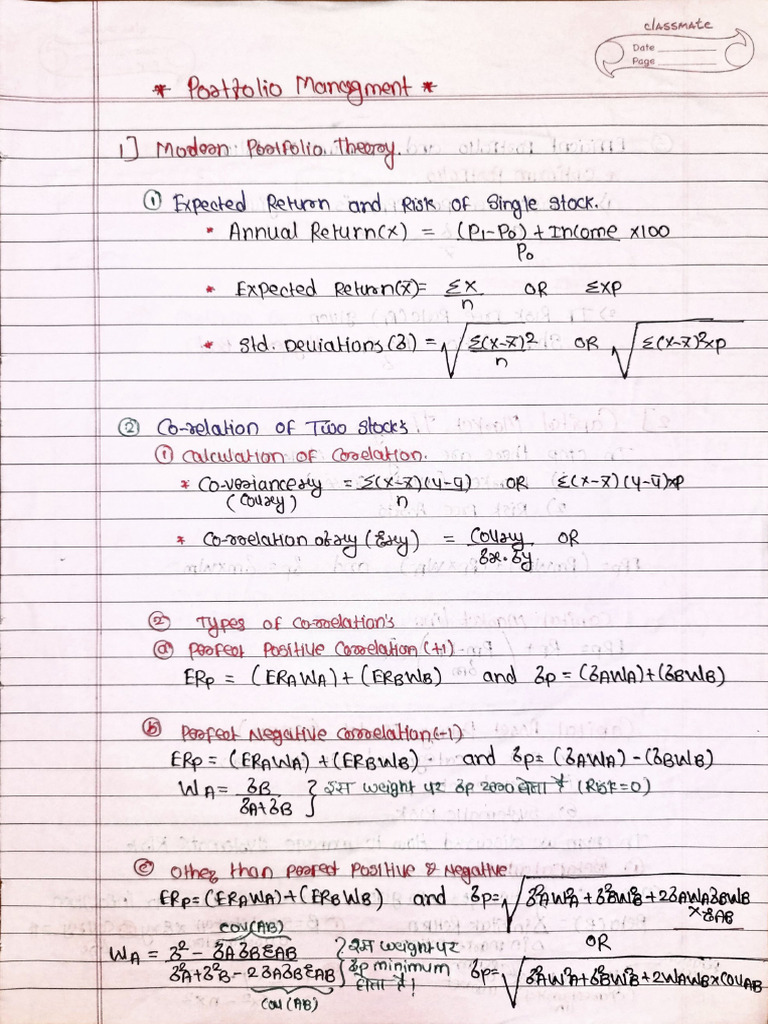 classmate
Date
Page
* Portfolio Managment *
1] Modern Portfolio Theory.
① Expected Return and Risk of Single Stock.
* Annual Return(x) = (P1-P0) + Income x100
P0
* Expected Return(x̄) = Σx/n OR Σxp
* Std. Deviations(σ) = √Σ(x-x̄)²/n OR √Σ(x-x̄)²xp
② Co-relation of Two Stocks
① Calculation of Correlation.
* Co-variancexy = Σ(x-x̄)(y-ȳ)/n OR Σ(x-x̄)(y-ȳ)xp
(Covxy)
* Co-rrelation of xy (ξxy) = Covxy/σx.σy OR
② Types of Co-rrelation's
ⓐ Perfect Positive Correlation (+1)
ERp = (ERAWA) + (ERBWB) and σp = (σAWA)+(σBWB)
ⓑ Perfect Negative Correlation(-1)
ERp = (ERAWA) + (ERBWB) and σp = (σAWA) - (σBWB)
WA = σB/σA+σB } इस weight पर σp zero होता है (Risk=0)
ⓒ Other than Perfect Positive & Negative
ERp = (ERAWA)+(ERBWB) and σp=√σ²AW²A + σ²BW²B + 2σAWAσBWB x ξAB
cov(AB)
OR
WA = σ² - σAσBξAB / σ²A+σ²B - 2σAσBξAB } इस weight पर σp minimum होता है!
σp=√σ²AW²A+σ²BW²B+2WAWB x COVAB
cov(AB)